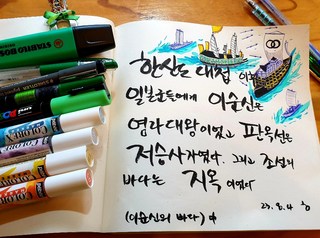 한산도 대첩 이후
일본군들에게 이순신은
염라대왕이었고 판옥선은
저승사자였다. 그리고 조선의
바다는 지옥이었다
(이순신의 바다) 中
23. 8. 4
STABILO BOSS
COLOREX
COLOREX